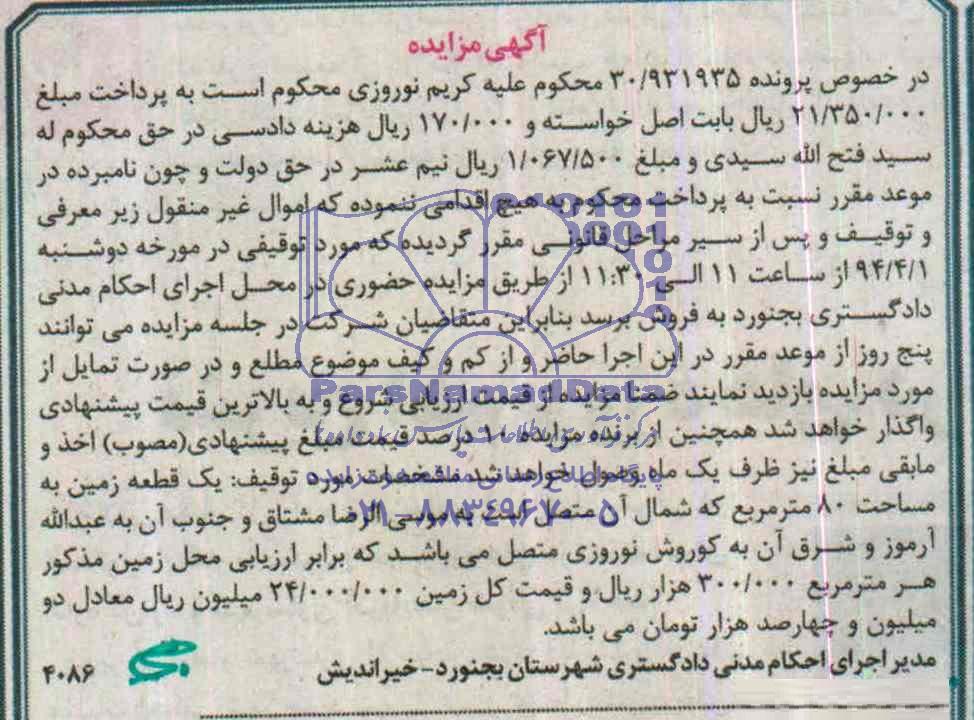 آگهی مزایده
در خصوص پرونده ۳۰/۹۳۱۹۳۵ محکوم علیه کریم نوروزی محکوم است به پرداخت مبلغ
۲۱/۳۵۰/۰۰۰ ریال بابت اصل خواسته و ۱۷۰/۰۰۰ ریال هزینه دادرسی در حق محکوم له
سید فتح الله سیدی و مبلغ ۱/۰۶۷/۵۰۰ ریال نیم عشر در حق دولت و چون نامبرده در
موعد مقرر نسبت به پرداخت محکوم به هیچ اقدامی ننموده که اموال غیر منقول زیر معرفی
و توقیف و پس از سیر مراحل قانونی مقرر گردیده که مورد توقیفی در مورخه دوشنبه
۹۴/۴/۱ از ساعت ۱۱ الی ۱۱:۳۰ از طریق مزایده حضوری در محل اجرای احکام مدنی
دادگستری بجنورد به فروش برسد بنابراین متقاضیان شرکت در جلسه مزایده می توانند
پنج روز از موعد مقرر در این اجرا حاضر و از کم و کیف موضوع مطلع و در صورت تمایل از
مورد مزایده بازدید نمایند ضمنا مزایده از قیمت ارزیابی شروع و به بالاترین قیمت پیشنهادی
واگذار خواهد شد همچنین از برنده مزایده ۱۰ درصد قیمت مبلغ پیشنهادی(مصوب) اخذ و
مابقی مبلغ نیز ظرف یک ماه وصول خواهد شد. مشخصات مورد توقیف: یک قطعه زمین به
مساحت ۸۰ مترمربع که شمال آن متصل است به موسی الرضا مشتاق و جنوب آن به عبدالله
آرموز و شرق آن به کوروش نوروزی متصل می باشد که برابر ارزیابی محل زمین مذکور
هر مترمربع ۳۰۰/۰۰۰ هزار ریال و قیمت کل زمین ۲۴/۰۰۰/۰۰۰ میلیون ریال معادل دو
میلیون و چهارصد هزار تومان می باشد.
مدیر اجرای احکام مدنی دادگستری شهرستان بجنورد-خیراندیش
۴۰۸۶
ParsNamadData
۰۲۱-۸۸۳۴۹۶۷۰-۵